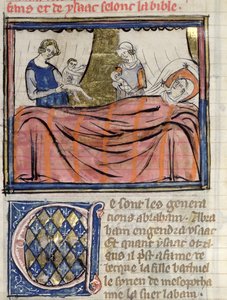 sans et de ysaac selonc la bible.
Ce sont les genera
tions abraham. Abra
ham engendra ysaac
Et quant ysaac ot
ans il prist a fame
la fille bathuel
le syrien de mesopotha
mie la suer laban.